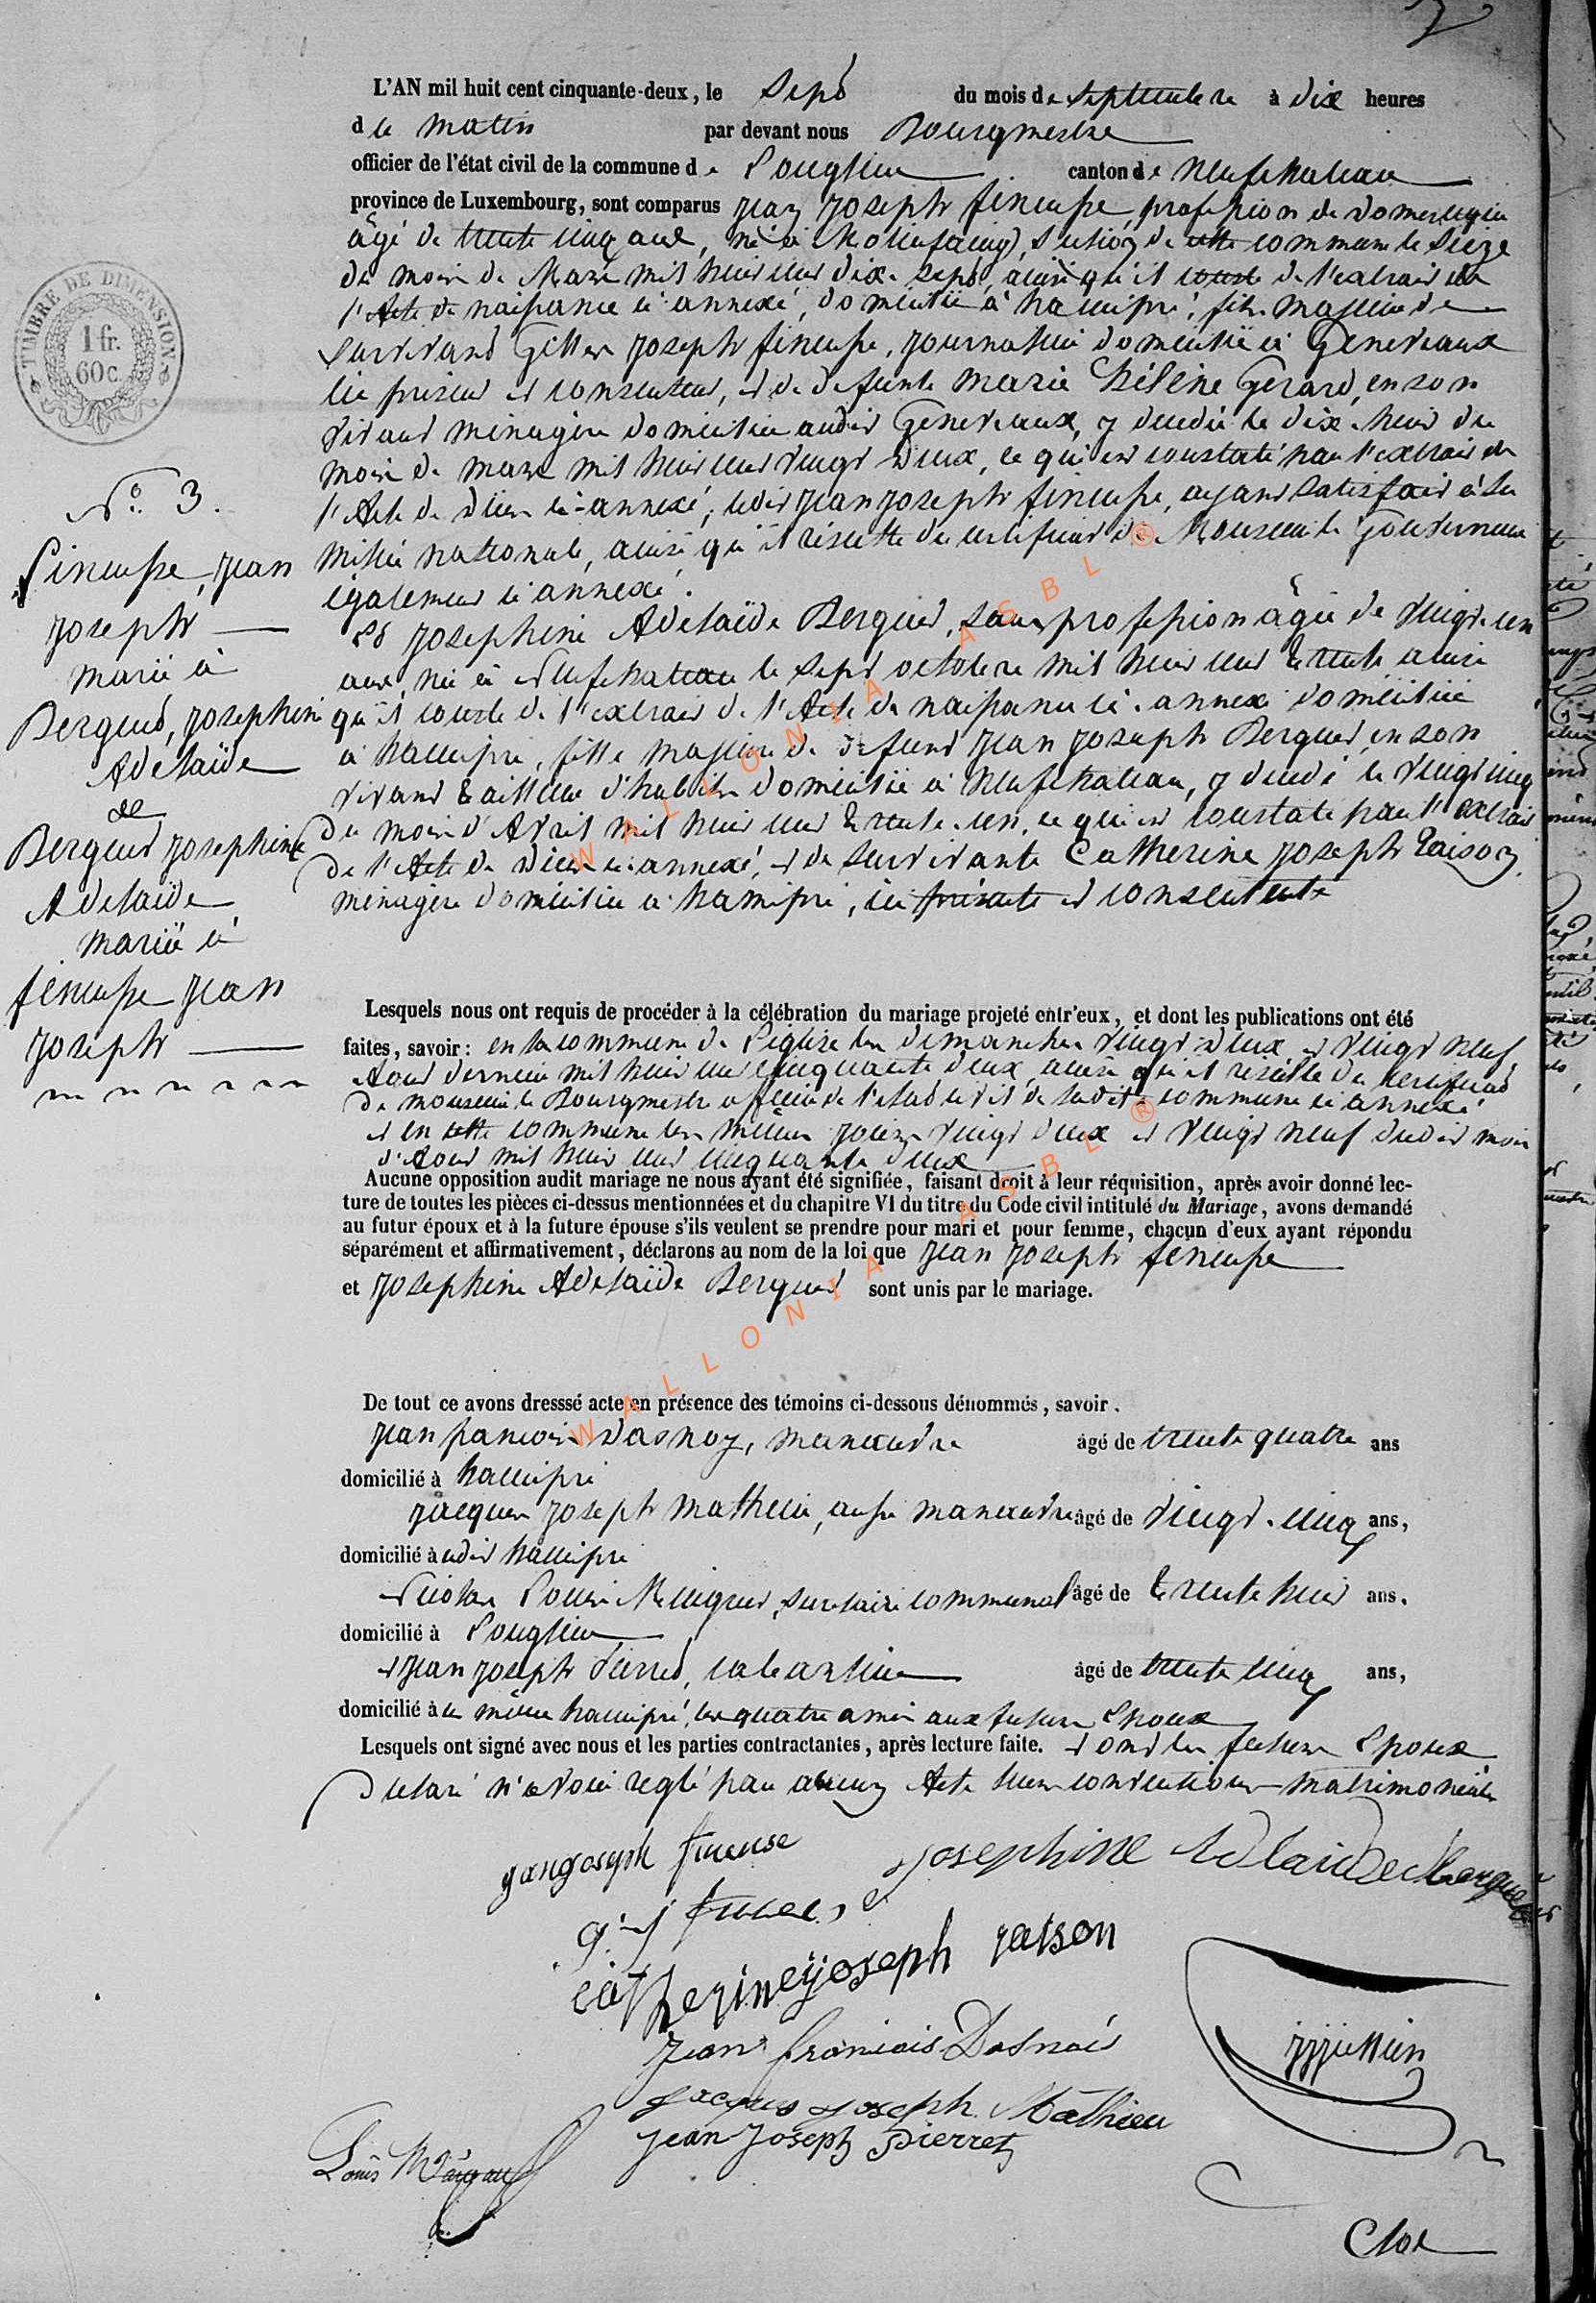 L'AN mil huit cent cinquante-deux, le Sept du mois de Septembre à dix heures
d le matin par devant nous Bourgmestre
officier de l'état civil de la commune de Longlier canton de Neufchateau
province de Luxembourg, sont comparus Jean Joseph fineuse, profession de domestique
âgé de trente cinq ans, né à Molinfaing, section de cette commune le Seize
du mois de Mars mil huit cent dix-sept, ainsi qu'il conste de l'extrait de
l'Acte de naissance ci annexé, domicilié à hamipré, fils majeur de
Survivant Gilles Joseph fineuse, journalier domicilié à Genevaux
ici présent et consentant, et de defunte Marie hélène Gerard, en son
vivant ménagère domiciliée audit Genevaux, y decedée le dix-huit du
mois de mars mil huit cent vingt deux, ce qui est constaté par l'extrait de
l'Acte de décès ci-annexé, ledit Jean Joseph fineuse, ayant satisfait à la
milice nationale, ainsi qu'il résulte du certificat de Monsieur le Gouverneur
également ci annexé.
Et Josephine Adelaïde Berguet, sans profession âgée de vingt-un
ans, née à Neufchateau le sept octobre mil huit cent trente ainsi
qu'il conste de l'extrait de l'Acte de naissance ci-annexé domiciliée
à hamipré, fille majeure de defunt Jean Joseph Berguet, en son
vivant tailleur d'habits domicilié à Neufchateau, y decedé le vingt cinq
du mois d'Avril mil huit cent trente-un, ce qui est constaté par l'extrait
de l'Acte de décès ci-annexé, et de survivante Catherine Joseph Raison
ménagère domiciliée à hamipré, ici présente et consentante
No. 3.
fineuse, Jean
Joseph
marié à
Berguet, Josephine
Adelaïde
et
Berguet Josephine
Adelaïde
mariée à
fineuse Jean
Joseph
Lesquels nous ont requis de procéder à la célébration du mariage projeté entr'eux, et dont les publications ont été
faites, savoir: en la commune de Léglise les dimanches vingt deux et vingt neuf
Aout dernier mil huit cent cinquante deux, ainsi qu'il résulte du certificat
de monsieur le Bourgmestre officier de l'etat civil de ladite commune ci annexé
et en cette commune les mêmes jours vingt deux et vingt neuf dudit mois
d'Aout mil huit cent cinquante deux
Aucune opposition audit mariage ne nous ayant été signifiée, faisant droit à leur réquisition, après avoir donné lec-
ture de toutes les pièces ci-dessus mentionnées et du chapitre VI du titre du Code civil intitulé du Mariage, avons demandé
au futur époux et à la future épouse s'ils veulent se prendre pour mari et pour femme, chacun d'eux ayant répondu
séparément et affirmativement, déclarons au nom de la loi que Jean Joseph fineuse
et Josephine Adelaïde Berguet sont unis par le mariage.
De tout ce avons dresssé acte en présence des témoins ci-dessous dénommés, savoir.
Jean francois Dasnoy, manoeuvre âgé de trente quatre ans
domicilié à hamipré
Jacques Joseph Mathieu, aussi manoeuvre âgé de vingt-cinq ans,
domicilié à udit hamipré
Nicolas Louis Maiguet, secretaire communal âgé de trente huit ans.
domicilié à Longlier
et Jean Joseph Pierret, cabaretier âgé de trente cinq ans,
domicilié à le même hamipré, les quatre amis aux futurs Epoux
Lesquels ont signé avec nous et les parties contractantes, après lecture faite. et ont les futurs Epoux
declaré n'avoir reglé par aucun Acte leurs conventions matrimoniales
jean joseph fineuse
Josephine Adelaide Berguet
g. j fineuse
catherine joseph raison
jean francois Dasnois
jjjullien
jacques joseph Mathieu
jean Joseph Pierret
Louis
Clos
TIMBRE DE DIMENSION
1 fr.
60 c.
WALLONIA ASBL ®
WALLONIA ASBL ®